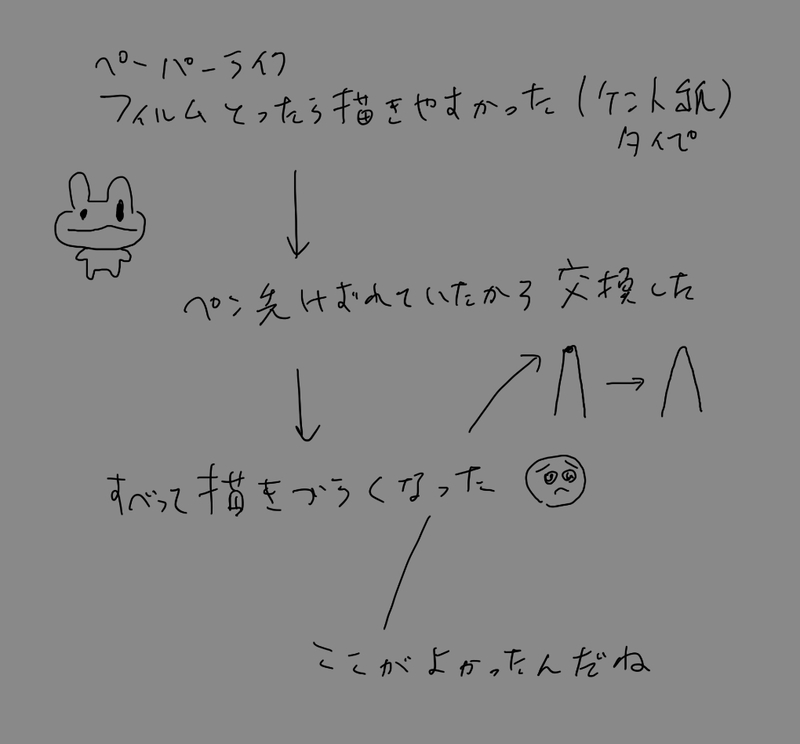 ペーパーライク
フィルムとったら描きやすかった(ケント紙)
タイプ
ペン先けばれていたから交換した
すべって描きづらくなった
ここがよかったんだね